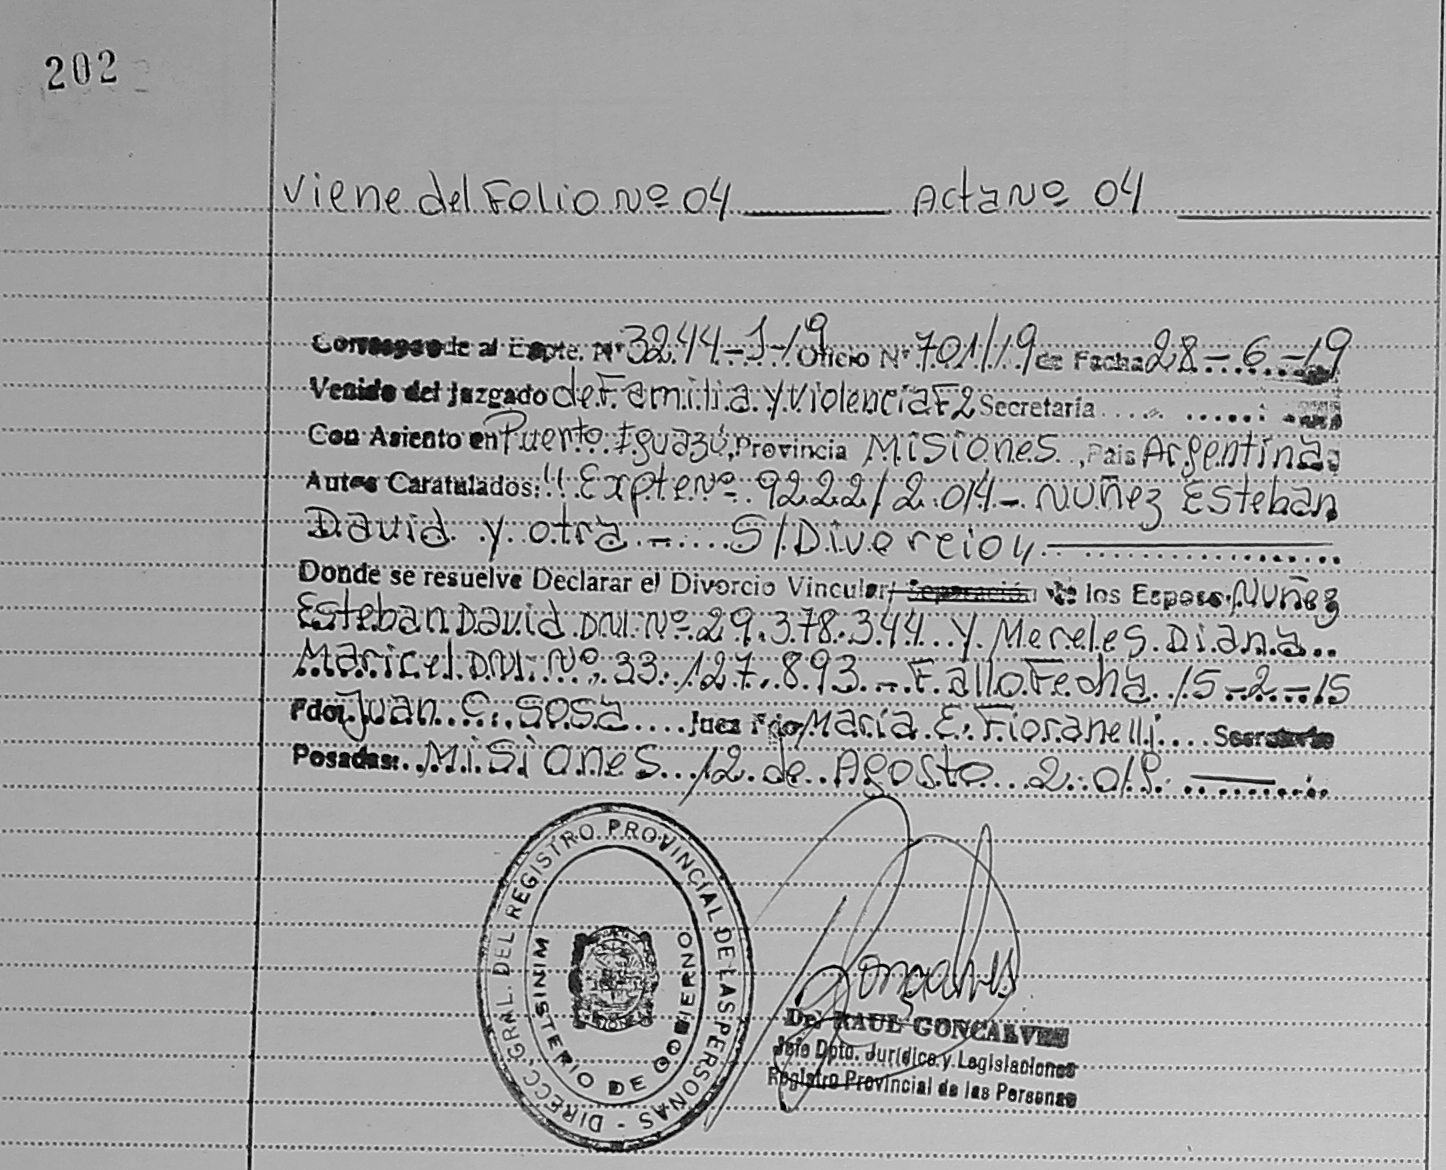 202
Viene del Folio Nº 04 Acta Nº 04
Corresponde al Expte. Nº 3244-J-19 Oficio Nº 701/19 de Fecha 28-6-19
Venido del Juzgado de Familia y Violencia F2 Secretaría
Con Asiento en Puerto Iguazú, Provincia Misiones, País Argentina
Autos Caratulados: "Expte Nº 9222/2.014- Nuñez Esteban
David y otra - S/Divorcio"
Donde se resuelve Declarar el Divorcio Vincular/ Separación de los Esposos Nuñez
Esteban David DNI. Nº 29.378.344 y Mereles Diana
Maricel DNI. Nº 33.127.893 - Fallo Fecha 15-2-15
Fdo: Juan C. Sosa Juez Fdo María E. Fioranelli Secretario
Posadas: Misiones 12 de Agosto 2.019
DIRECC. GRAL. DEL REGISTRO PROVINCIAL DE LAS PERSONAS -
MINISTERIO DE GOBIERNO
Goncalves
Dr. RAUL GONCALVES
Jefe Dpto. Jurídica y Legislaciones
Registro Provincial de las Personas